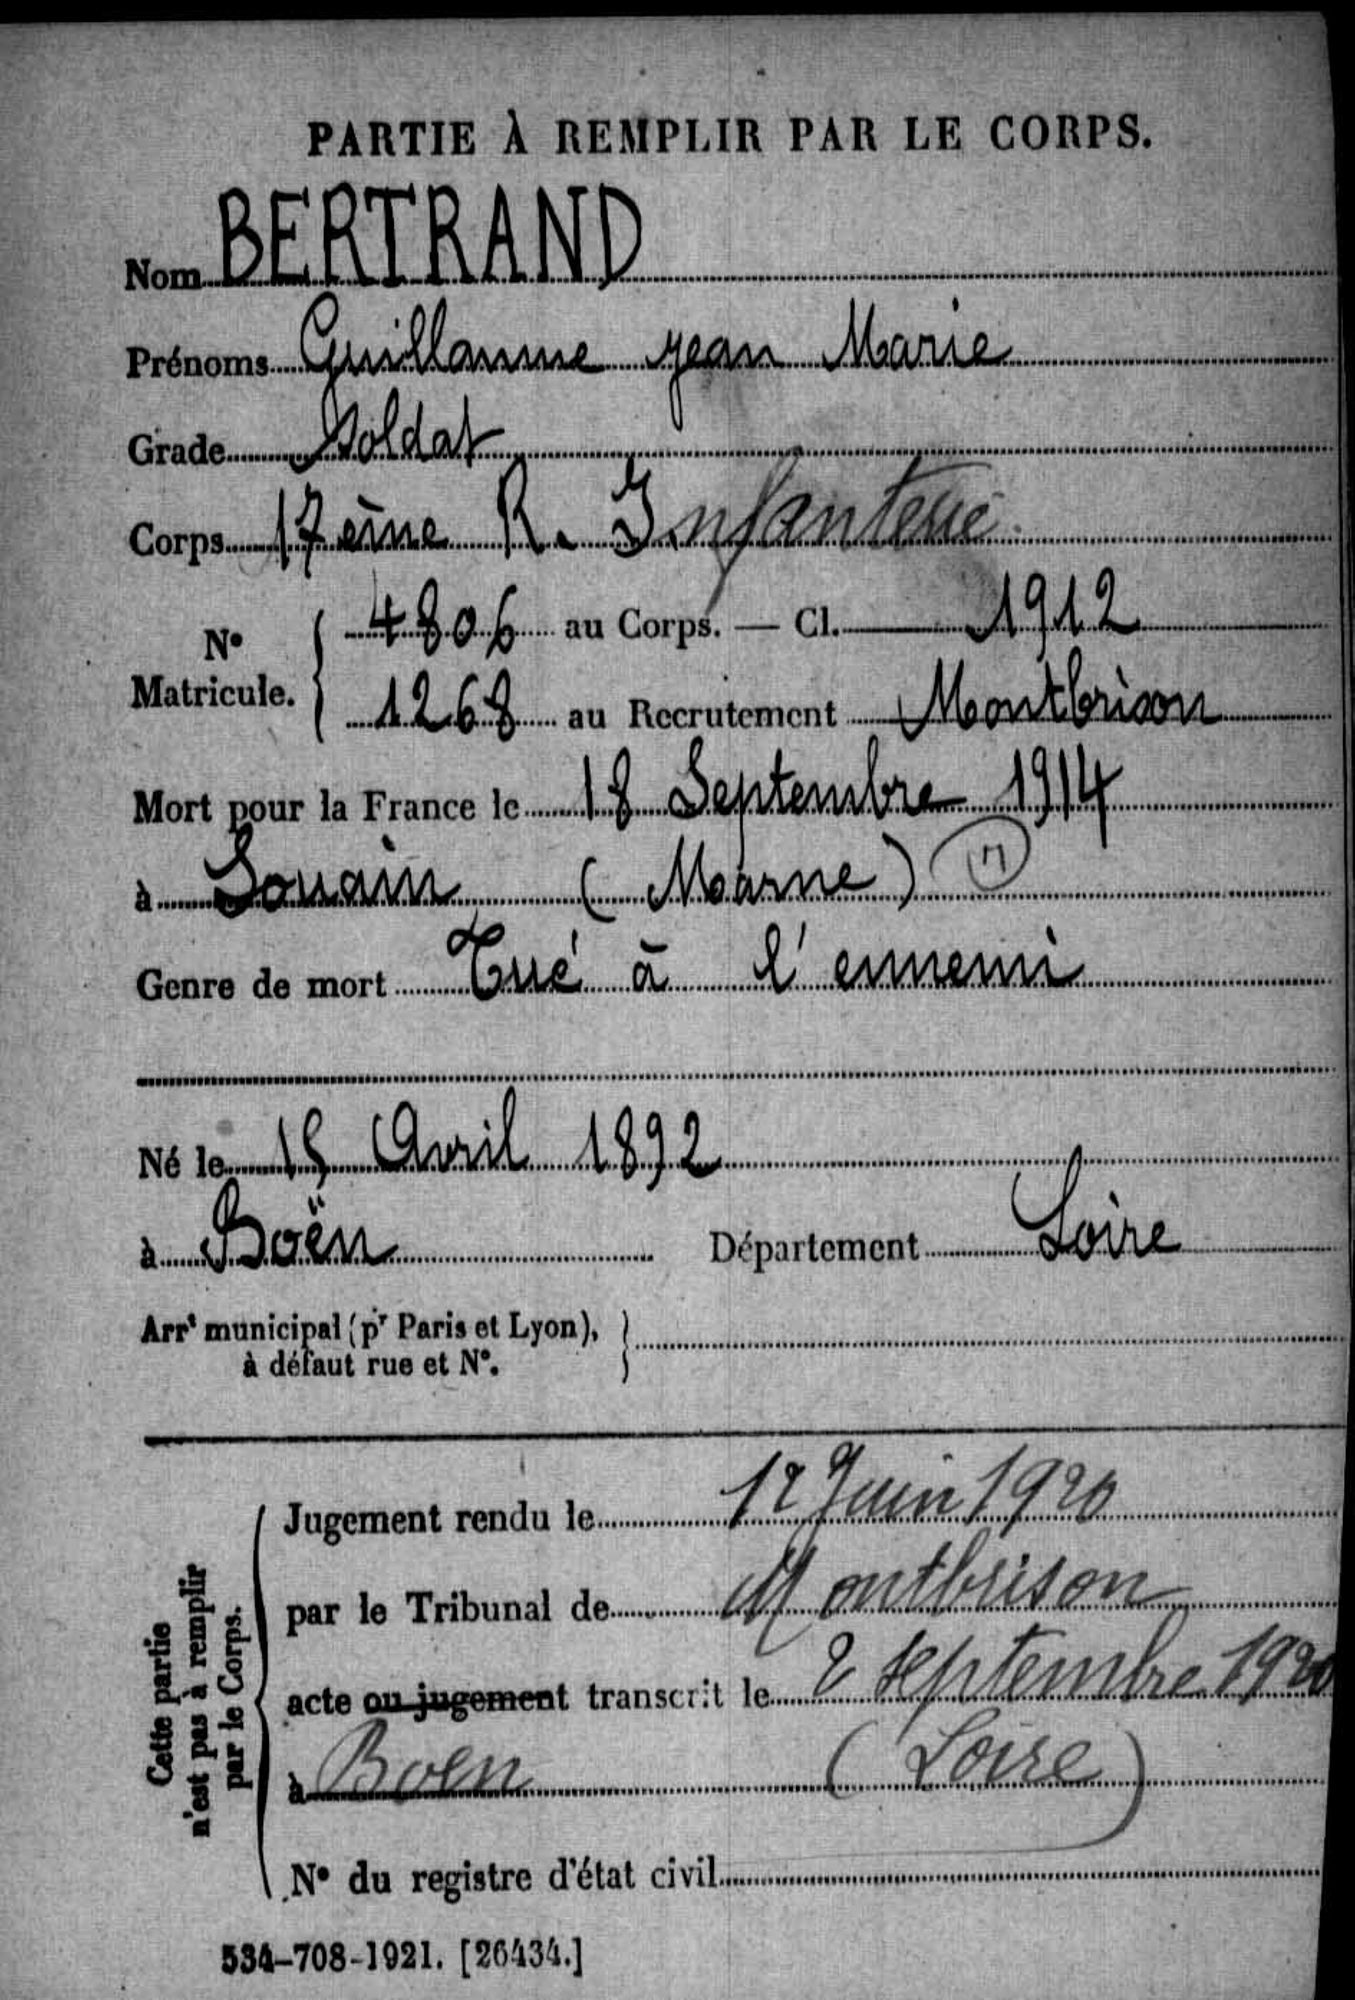 PARTIE À REMPLIR PAR LE CORPS.
Nom BERTRAND
Prénoms Guillaume Jean Marie
Grade Soldat
Corps 17ème R. Infanterie
N° Matricule. { 4806 au Corps. — Cl. 1912
1268 au Recrutement Montbrison
Mort pour la France le 18 Septembre 1914
à Souain (Marne)
Genre de mort Tué à l'ennemi
Né le 15 Avril 1892
à Boën Département Loire
Arrt municipal (pr Paris et Lyon), }
à défaut rue et N°.
Cette partie
n'est pas à remplir
par le Corps.
Jugement rendu le 12 Juin 1920
par le Tribunal de Montbrison
acte ou jugement transcrit le 2 septembre 1920
à Boen (Loire)
N° du registre d'état civil
534-708-1921. [26434.]